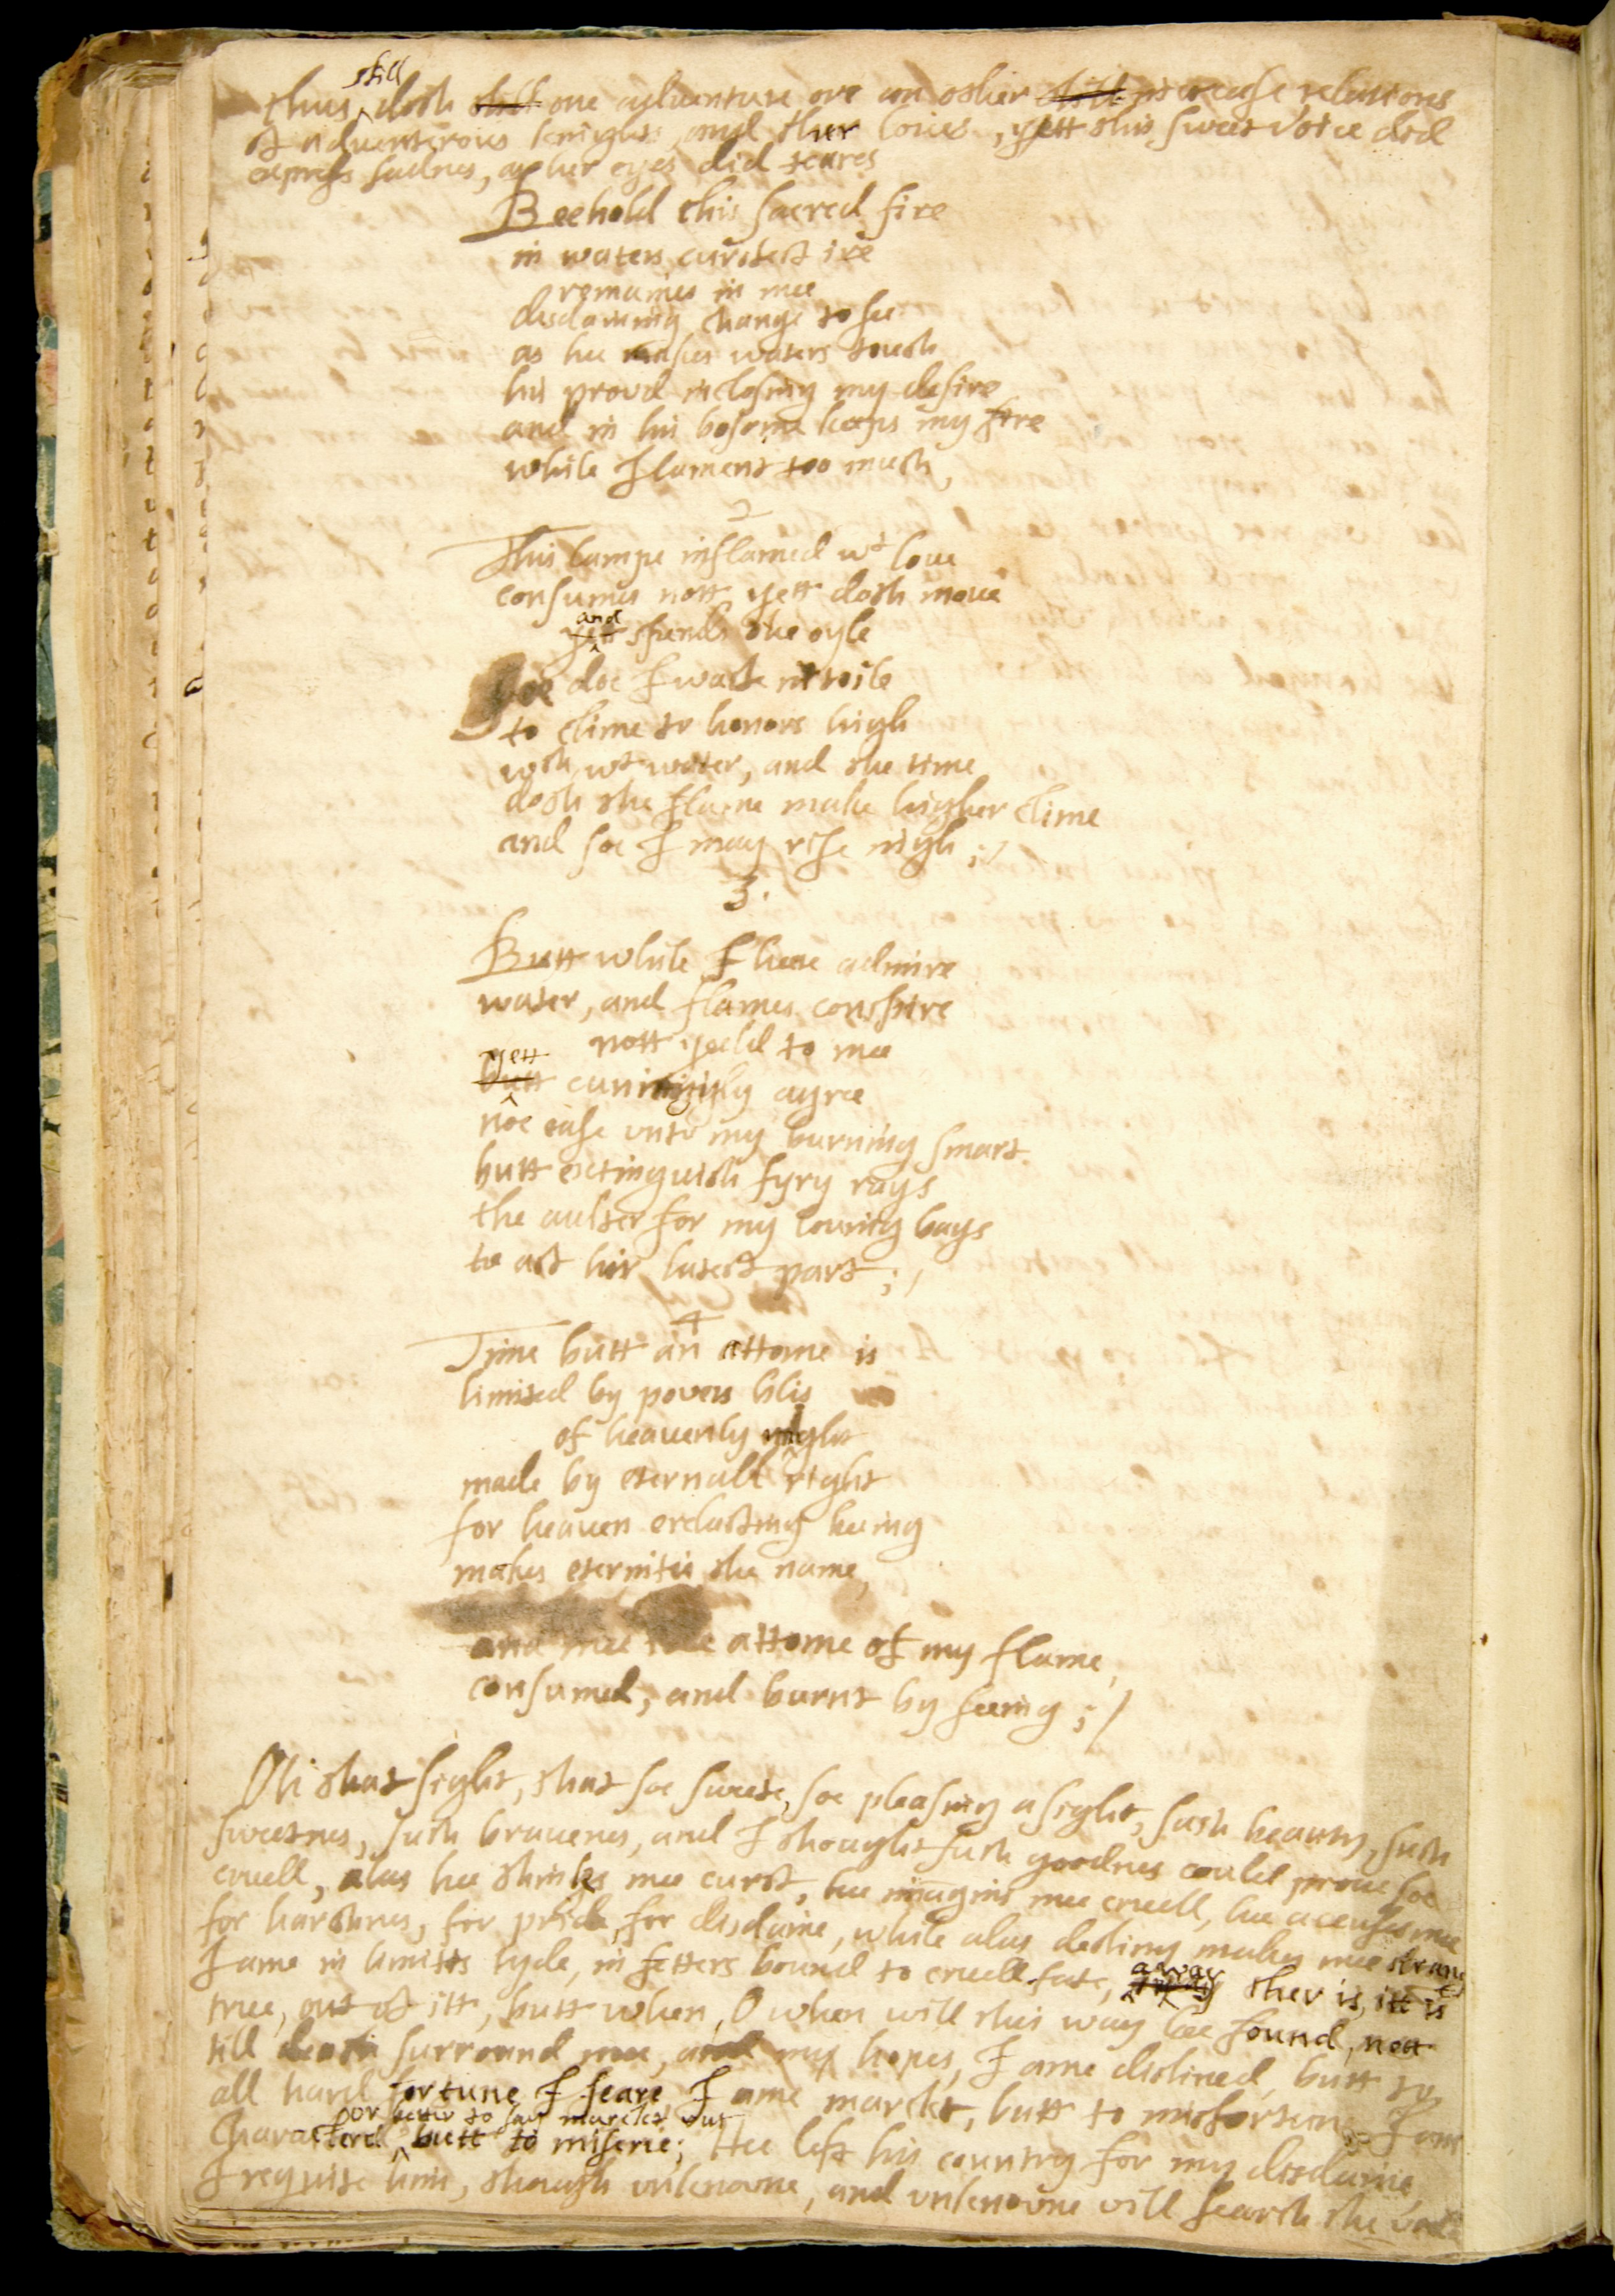 still
thus doth still one adventure ore an other still increase relations
of adventerous knights, and ther loves, yett this sweet voice did
express sadnes, as her eyes did teares
Beehold this sacred fire
in waters curstest ire
remaines in mee
disdaining change to see
as hee makes waters touch
his proud inclosing my desire
and in his bosome keeps my fire
while I lament too much,
2
This lampe inflamed wt love
consumes nott, yett doth move
and
yett spends the oyle
soe doe I wast in toile
to clime to honors high
wch wt water, and the time
doth the flame make higher clime
and soe I may rise nigh ;/
3.
Butt while I heere admire
water, and flames conspire
nott yeeld to mee
yett
butt cuningly agree
noe ease unto my burning smart
butt extinguish fyry rays
the aulter for my loving bays
to act his latest part ;/
4
Time butt an attome is
limited by powers blis
of heavenly might
made by eternall right
for heaven erelasting beeing
makes eternitie the name,
and mee the attome of my flame,
consumed, and burnt by seeing ;/
Oh that sight, that soe sweete, soe pleasing a sight, such beauty, such
sweetnes, such bravenes, and I thought such goodnes could prove soe
cruell, alas hee thinks mee curst, hee imagins mee cruell, hee accuses mee
for harshnes, for pride, for disdaine, while alas destiny makes mee strang
I ame in limitts tyde, in fetters bound to cruell fate, away ther is, itt is
true, out of itt, butt when, O when will this way bee found, nott
till death surround mee, and my hopes, I ame distined, butt to
all hard fortune I feare I ame marckt, butt to misfortune I ame
or better to say marckt out
Charactered butt to miserie; Hee left his country for my disdaine,
I requite him, though unknowne, and unknowne will search the